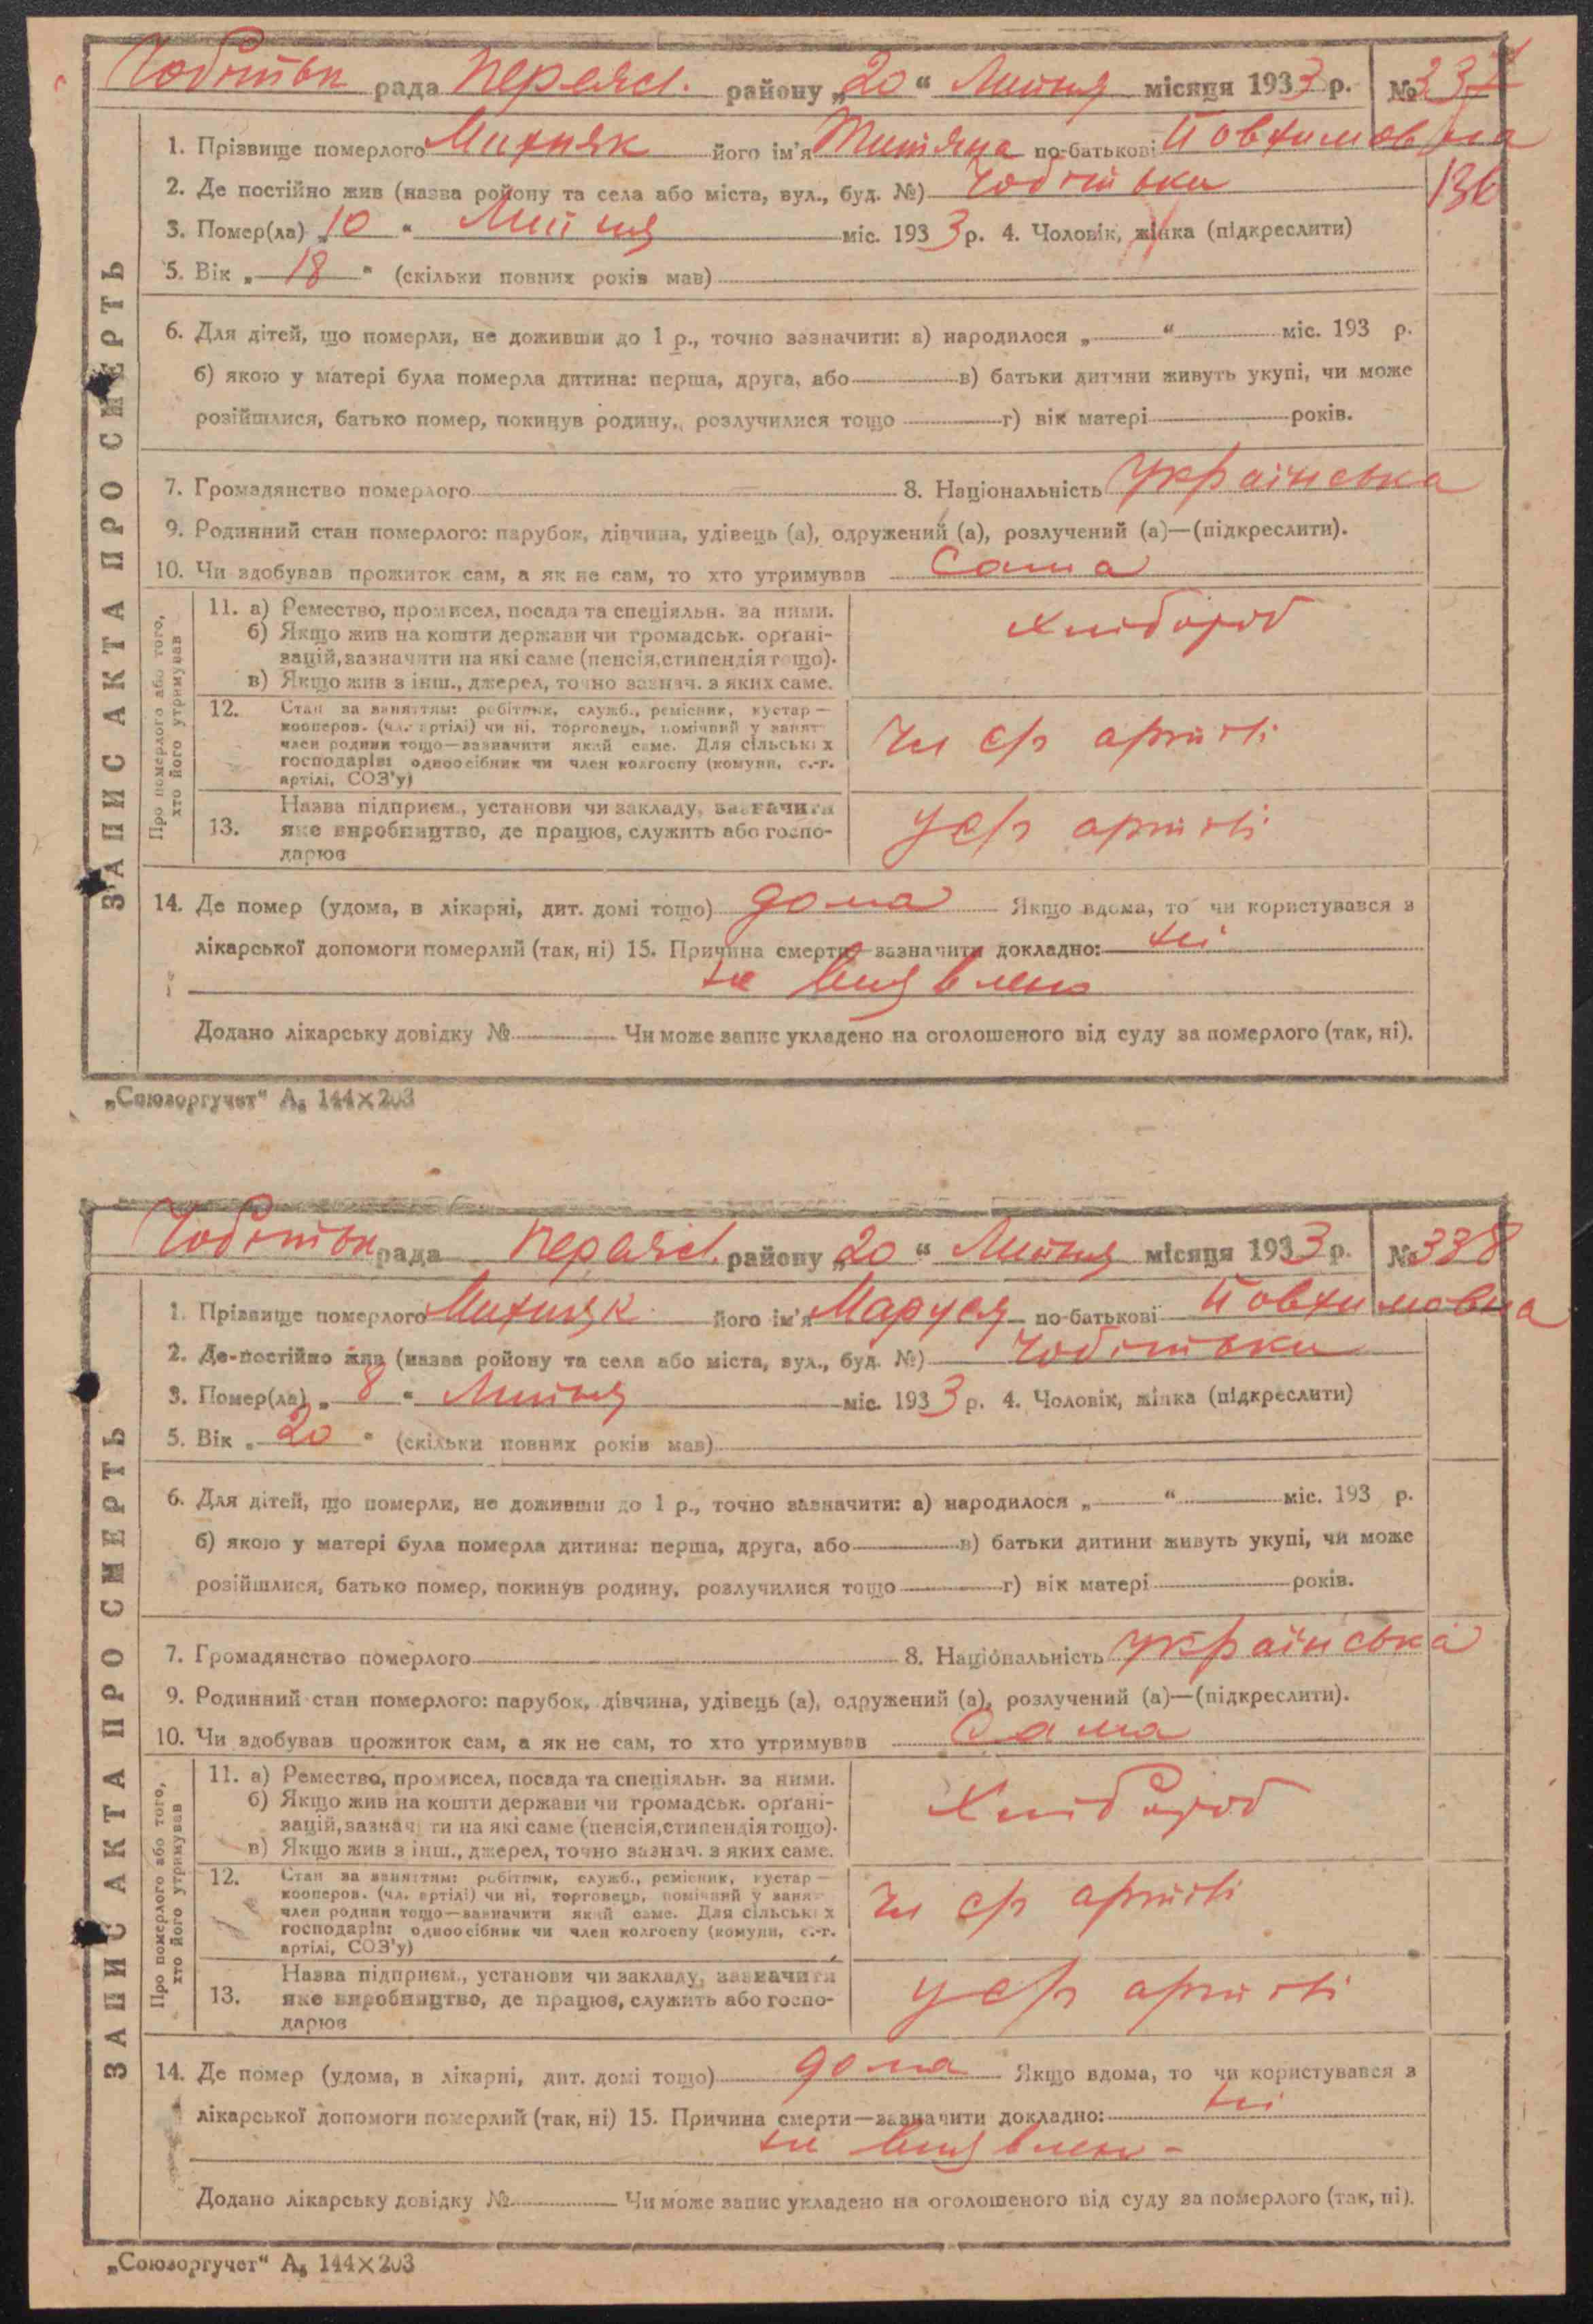 Чобітьки рада Переясл. району „20“ Липня місяця 1933 р. № 337
1. Прізвище померлого Михняк його ім'я Титяна по-батькові Йовхимовна
136
2. Де постійно жив (назва ройону та села або міста, вул., буд. №) Чобітьки
3. Помер(ла) „10“ Липня міс. 1933 р. 4. Чоловік, жінка (підкреслити)
5. Вік „18“ (скільки повних років мав)
6. Для дітей, що померли, не доживши до 1 р., точно зазначити: а) народилося „ “ міс. 193 р.
б) якою у матері була померла дитина: перша, друга, або в) батьки дитини живуть укупі, чи може
розійшлися, батько помер, покинув родину, розлучилися тощо г) вік матері років.
7. Громадянство померлого 8. Національність українська
9. Родинний стан померлого: парубок, дівчина, удівець (а), одружений (а), розлучений (а)—(підкреслити).
10. Чи здобував прожиток сам, а як не сам, то хто утримував Сама
Про померлого або того, хто його утримував
11. а) Ремество, промисел, посада та спеціяльн. за ними.
б) Якщо жив на кошти держави чи громадськ. органі-
зацій, зазначити на які саме (пенсія, стипендія тощо).
в) Якщо жив з інш., джерел, точно зазнач. з яких саме.
хлібороб
12. Стан за заняттям: робітник, служб., ремісник, кустар—
кооперов. (чл. артілі) чи ні, торговець, помічний у занят
член родини тощо—зазначити який саме. Для сільських
господарів: одноосібник чи член колгоспу (комуни, с.-г.
артілі, СОЗ'у)
Чл с/г артілі
13. Назва підприєм., установи чи закладу, зазначити
яке виробництво, де працює, служить або госпо-
дарює
У с/г артілі
14. Де помер (удома, в лікарні, дит. домі тощо) дома Якщо вдома, то чи користувався з
лікарської допомоги померлий (так, ні) 15. Причина смерти—зазначити докладно: ні
не виявлено
Додано лікарську довідку № Чи може запис укладено на оголошеного від суду за померлого (так, ні).
ЗАПИС АКТА ПРО СМЕРТЬ
„Союзоргучет“ А₅ 144×203
Чобітьки рада Переясл. району „20“ Липня місяця 1933 р. № 338
1. Прізвище померлого Михняк його ім'я Маруся по-батькові Йовхимовна
2. Де постійно жив (назва ройону та села або міста, вул., буд. №) Чобітьки
3. Помер(ла) „8“ Липня міс. 1933 р. 4. Чоловік, жінка (підкреслити)
5. Вік „20“ (скільки повних років мав)
6. Для дітей, що померли, не доживши до 1 р., точно зазначити: а) народилося „ “ міс. 193 р.
б) якою у матері була померла дитина: перша, друга, або в) батьки дитини живуть укупі, чи може
розійшлися, батько помер, покинув родину, розлучилися тощо г) вік матері років.
7. Громадянство померлого 8. Національність українська
9. Родинний стан померлого: парубок, дівчина, удівець (а), одружений (а), розлучений (а)—(підкреслити).
10. Чи здобував прожиток сам, а як не сам, то хто утримував Сама
Про померлого або того, хто його утримував
11. а) Ремество, промисел, посада та спеціяльн. за ними.
б) Якщо жив на кошти держави чи громадськ. органі-
зацій, зазначити на які саме (пенсія, стипендія тощо).
в) Якщо жив з інш., джерел, точно зазнач. з яких саме.
Хлібороб
12. Стан за заняттям: робітник, служб., ремісник, кустар—
кооперов. (чл. артілі) чи ні, торговець, помічний у занят
член родини тощо—зазначити який саме. Для сільських
господарів: одноосібник чи член колгоспу (комуни, с.-г.
артілі, СОЗ'у)
Чл с/г артілі
13. Назва підприєм., установи чи закладу, зазначити
яке виробництво, де працює, служить або госпо-
дарює
У с/г артілі
14. Де помер (удома, в лікарні, дит. домі тощо) дома Якщо вдома, то чи користувався з
лікарської допомоги померлий (так, ні) 15. Причина смерти—зазначити докладно: ні
не виявлено
Додано лікарську довідку № Чи може запис укладено на оголошеного від суду за померлого (так, ні).
ЗАПИС АКТА ПРО СМЕРТЬ
„Союзоргучет“ А₅ 144×203